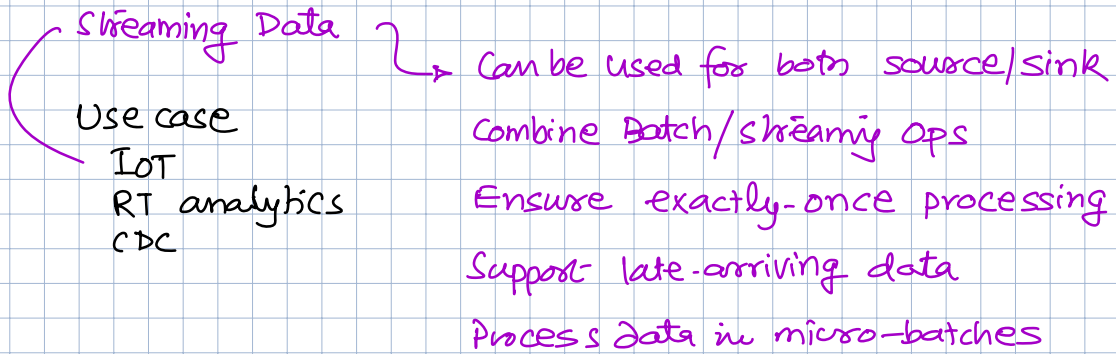 Streaming Data
Use case
IOT
RT analytics
CDC
Can be used for both source/sink
Combine Batch/streamig Ops
Ensure exactly-once processing
Support late-arriving data
Process data in micro-batches